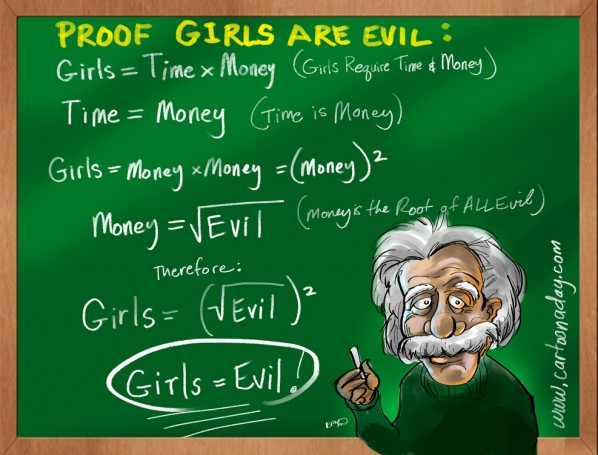 PROOF GIRLS ARE EVIL:
Girls = Time × Money (Girls Require Time & Money)
Time = Money (Time is Money)
Girls = Money × Money = (Money)²
Money = √Evil (Money is the Root of ALL Evils)
Therefore:
Girls = (√Evil)²
Girls = Evil!
www.cartoonaday.com